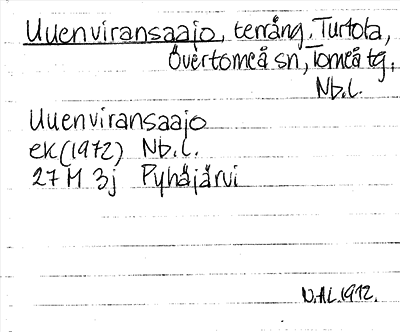 Uuenviransaajo, terräng, Turtola,
Övertorneå sn, Torneå tg,
Nb.l.
Uuenviransaajo
ek (1972) Nb.l.
27 M 3j Pyhäjärvi
DAL 1972.